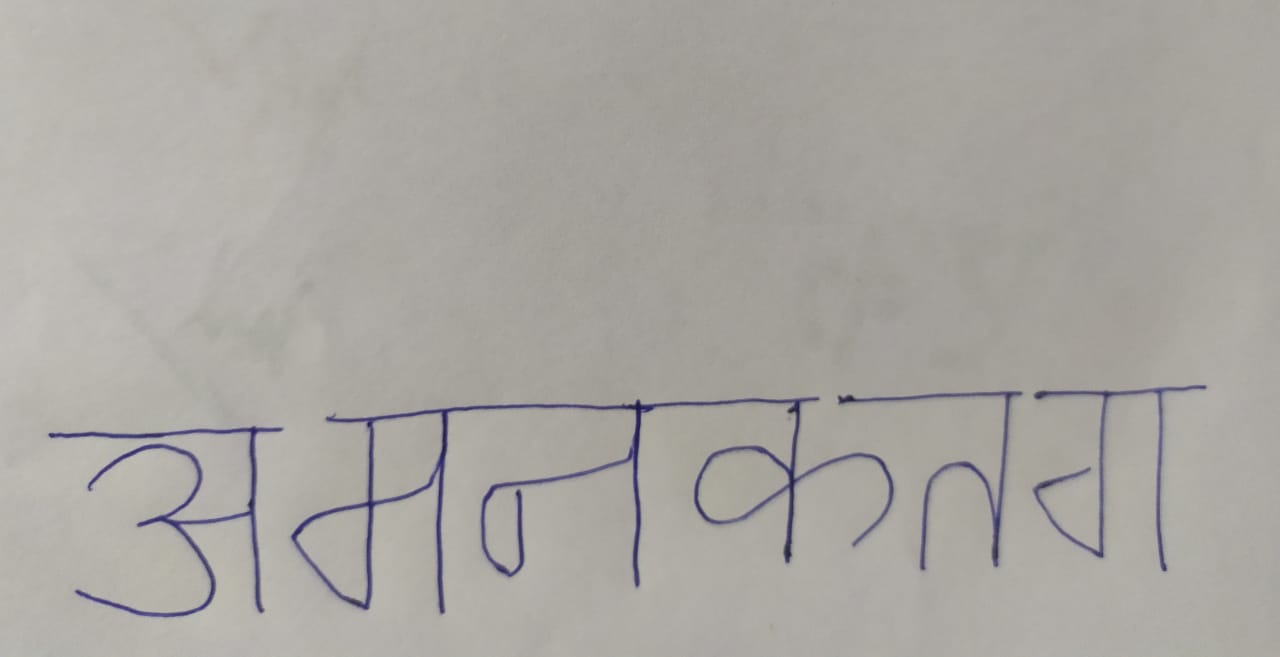 अमनकतग